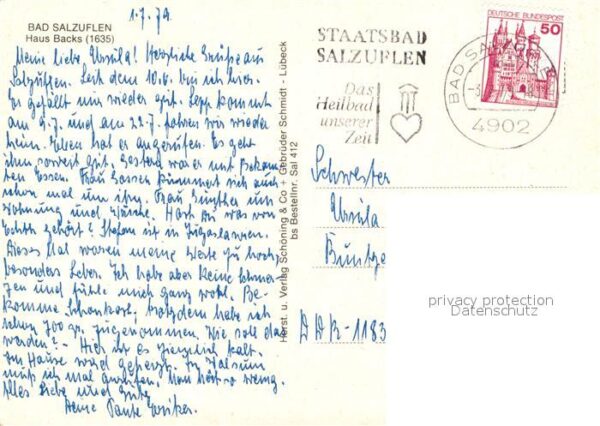 1.7.79
BAD SALZUFLEN
Haus Backs (1635)
Meine liebe Ursula! Herzliche Grüße aus
Salzuflen. Seit dem 10.6. bin ich hier.
Es gefällt mir wieder gut. Sepp kommt
am 9.7. und am 22.7. fahren wir wieder
heim. Ellen hat angerufen. Es geht
ihm soweit gut. Gestern war er mit Bekann
ten Essen. Frau kümmert sich auch
schon mal um ihn. Frau um
Wohnung und Wäsche. Hast Du was von
Edith gehört? Stefan ist in Jugoslawien.
Dieses Mal waren meine Werte zu hoch,
besonders Leber. Ich habe aber keine Schmer-
zen und fühle mich ganz wohl. Be-
komme Schonkost, trotzdem habe ich
schon 700 gr. zugenommen. Wie soll das
werden? - Hier ist es ziemlich kalt.
Im Hause wird geheizt. In
muß ich mal anrufen. Man hört so wenig.
Alles Liebe und Gute
Deine Tante
Horst. u. Verlag Schöning & Co + Gebrüder Schmidt - Lübeck
bs Bestellnr. Sal 412
STAATSBAD
SALZUFLEN
Das
Heilbad
unserer
Zeit
BAD SALZUFLEN
4902
DEUTSCHE BUNDESPOST
50
Schwester
Ursula
DDR-1183
privacy protection
Datenschutz